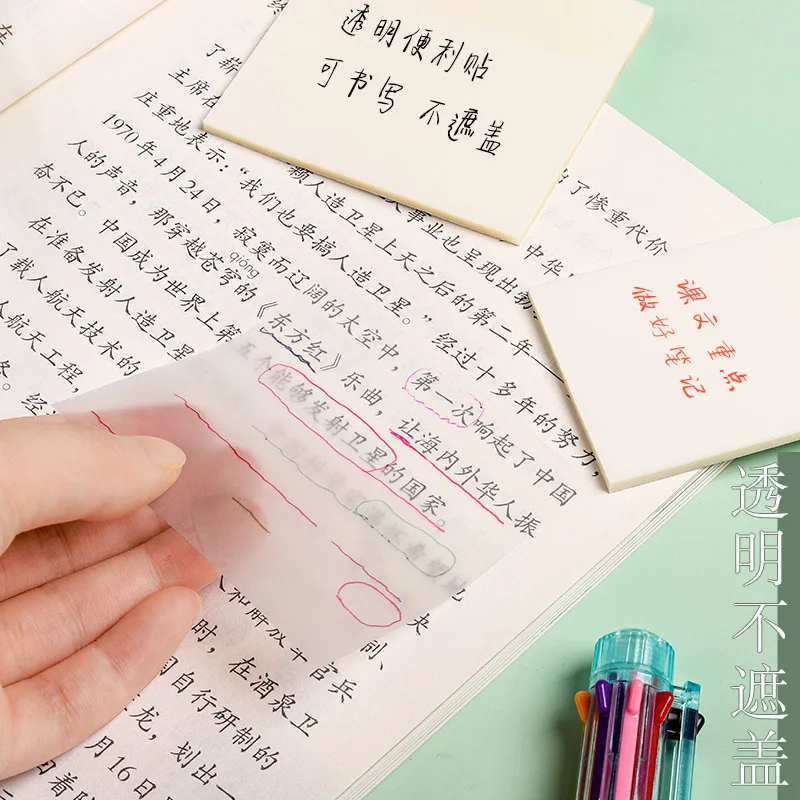 透明便利贴
可书写 不遮盖
课文重点
做好笔记
透明不遮盖
出了惨重代价
了薪
中华
事业也呈现出勃
主席在
颗人造卫星上天之后的第二年——
庄重地表示：“我们也要搞人造卫星。”经过十多年的努力，
1970年4月24日，寂寞而辽阔的太空中，第一次响起了中国
qióng
人的声音，那穿越苍穹的《东方红》乐曲，让海内外华人振
奋不已。中国成为世界上第五个能够发射卫星的国家。
在准备发射人造卫星
了载人航天技术的
人航天工程，
人和解放军官兵
时，在酒泉卫
国自行研制的
龙，划出一
月16日